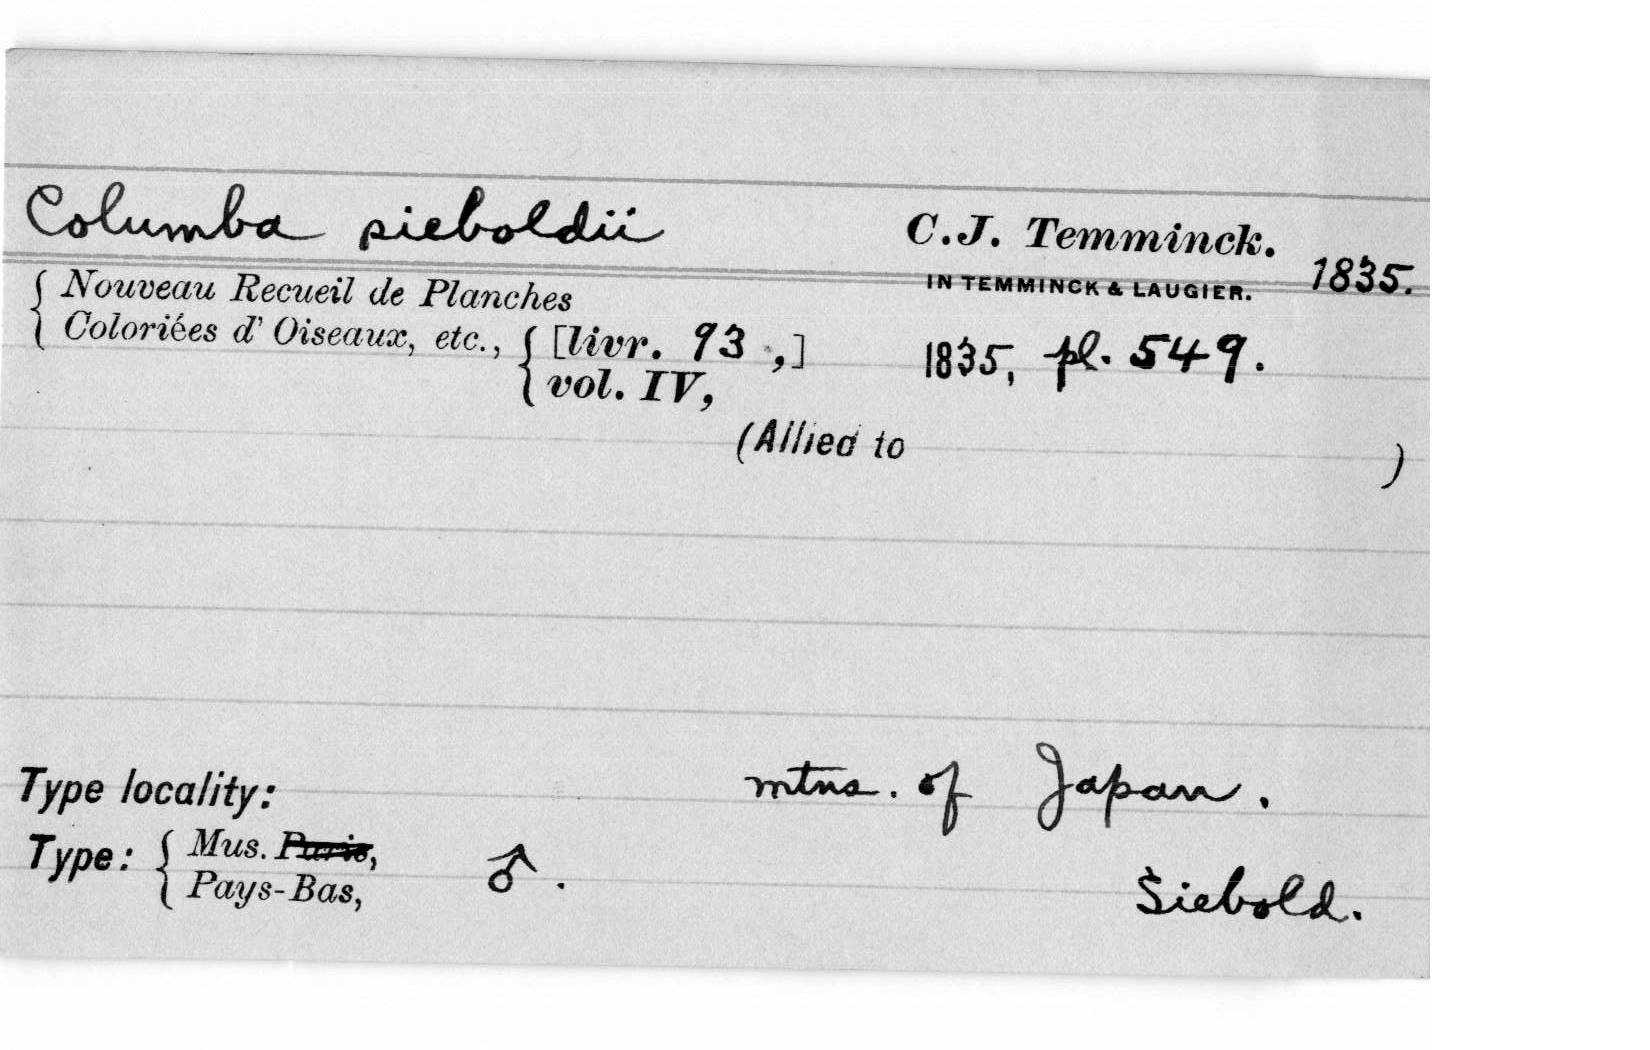 Columba sieboldii C.J. Temminck.
IN TEMMINCK & LAUGIER. 1835.
{ Nouveau Recueil de Planches
{ Coloriées d' Oiseaux, etc., { [livr. 93 ,] 1835, pl. 549.
{ vol. IV,
(Allied to )
Type locality: mtns. of Japan.
Type: { Mus. Paris, ♂. Siebold.
{ Pays-Bas,